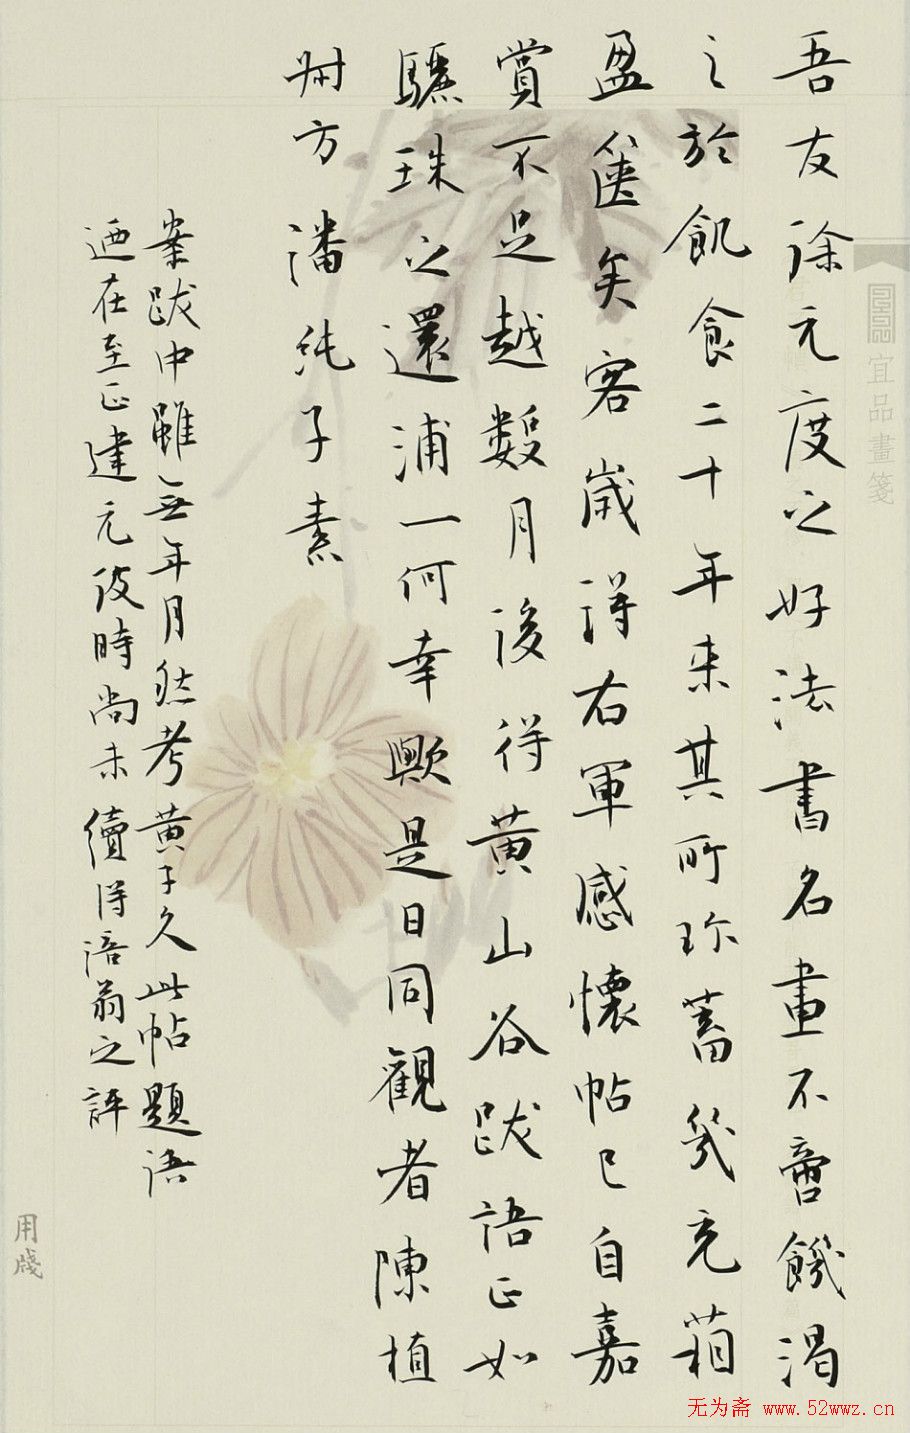 吾友徐元度之好法書名畫不啻饑渴
之於飢食二十年來其所珍蓄幾充箱
盈篋矣客歲得右軍感懷帖已自嘉
賞不足越數月後得黃山谷跋語正如
驪珠之還浦一何幸歟是日同觀者陳植
叔方潘純子素
案跋中雖無年月然考黃子久此帖題語
迺在至正建元彼時尚未續得涪翁之評
宜品畫箋
用牋
无为斋 www.52wwz.cn